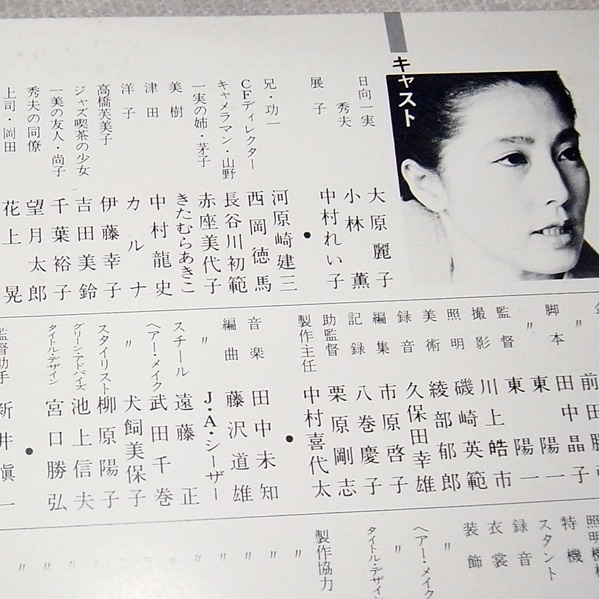 キャスト
日向一実 大原麗子
秀夫 小林薫
展子 中村れい子
●
兄・功一 河原崎建三
CFディレクター 西岡徳馬
キャメラマン・山野 長谷川初範
一実の姉・茅子 赤座美代子
美樹 きたむらあきこ
津田 中村龍史
洋子 カルナ
高橋芙美子 伊藤幸子
ジャズ喫茶の少女 吉田美鈴
一美の友人・尚子 千葉裕子
秀夫の同僚 望月太郎
上司・岡田 花上晃
前田勝
脚本 田中晶子
〃 東陽一
監督 東陽一
撮影 川上皓市
照明 磯崎英範
美術 綾部郁郎
録音 久保田幸雄
編集 市原啓子
記録 八巻慶子
助監督 栗原剛志
製作主任 中村喜代太
●
音楽 田中未知
編曲 藤沢道雄
〃 J・A・シーザー
スチール 遠藤正
ヘアー・メイク 武田千巻
〃 犬飼美保子
スタイリスト 柳原陽子
グリーン・アドバイス 池上信夫
タイトル・デザイン 宮口勝弘
監督助手 新井愼一
照明機材
特機
スタント
録音
衣裳
装飾
ヘアー・メイク
〃
タイトル・デザイン
製作協力
〃
〃
〃
〃
〃
〃
〃
〃
〃
〃
〃
〃